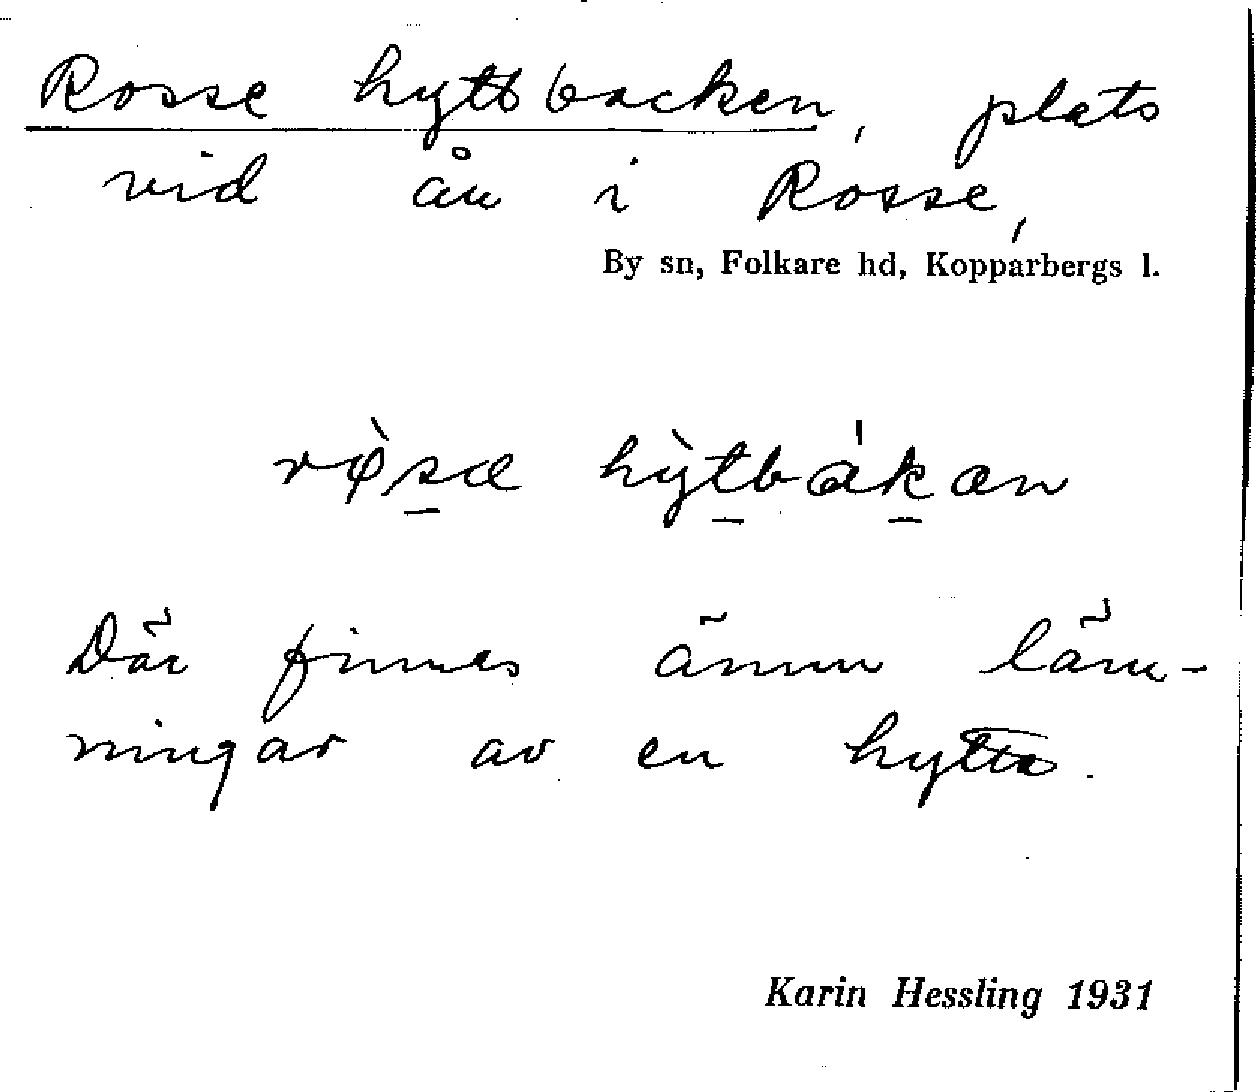 Rosse hyttbacken, plats
vid ån i Rosse,
By sn, Folkare hd, Kopparbergs l.
rø̀s̠æ hỳt̠bák̠æn
Där finnes ännu läm-
ningar av en hytta.
Karin Hessling 1931